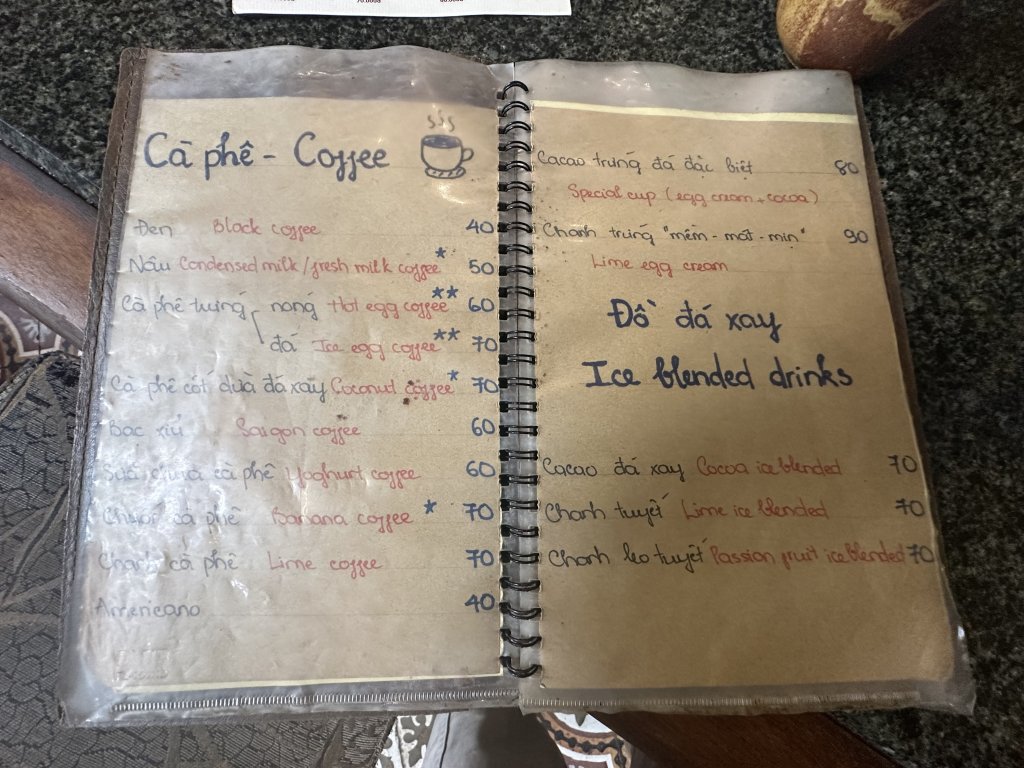 Cà phê - Coffee
Đen Black coffee 40
Nâu Condensed milk/fresh milk coffee * 50
Cà phê trứng nóng Hot egg coffee ** 60
đá Ice egg coffee ** 70
Cà phê cốt dừa đá xay Coconut coffee * 70
Bạc xỉu Saigon coffee 60
Sữa chua cà phê Yoghurt coffee 60
Chuối cà phê Banana coffee * 70
Chanh cà phê Lime coffee 70
Americano 40
Cacao trứng đá đặc biệt 80
Special cup (egg cream + cocoa)
Chanh trứng "mềm - mát - mịn" 90
Lime egg cream
Đồ đá xay
Ice blended drinks
Cacao đá xay Cocoa ice blended 70
Chanh tuyết Lime ice blended 70
Chanh leo tuyết Passion fruit ice blended 70